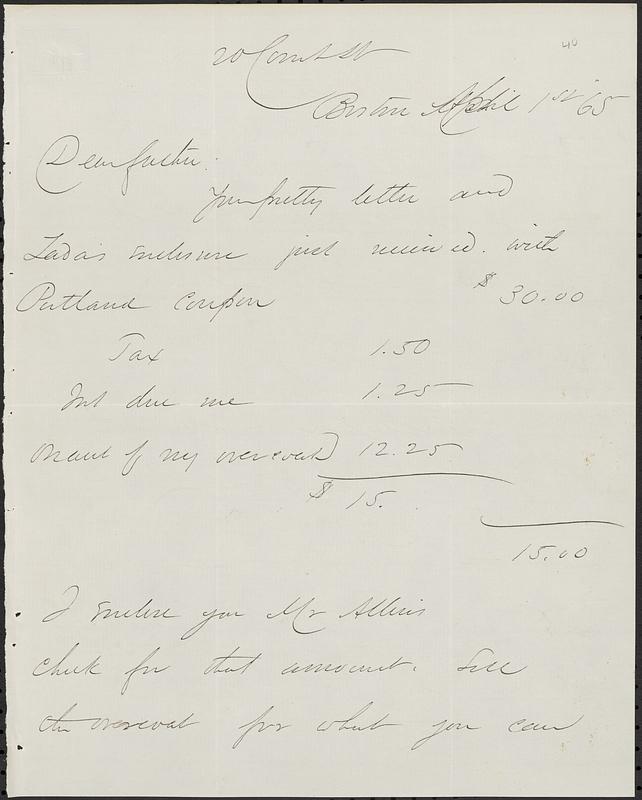 40
20 Court St
Boston April 1st 65
Dear
Your pretty letter and
enclosure just received. with
Portland Coupon $ 30.00
Tax 1.50
Int due me 1.25
on acct of my overcoat 12.25
$ 15.
15.00
I enclose you Mr
check for that amount. Sell
the overcoat for what you can